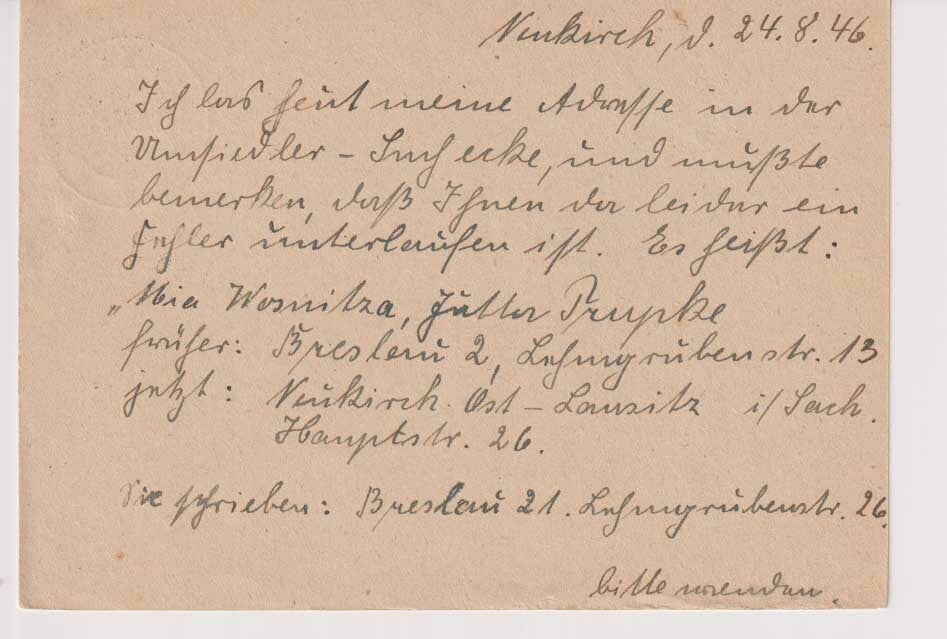 Neukirch, d. 24.8.46.
Ich las heut meine Adresse in der
Umsiedler - Suchecke, und mußte
bemerken, daß Ihnen da leider ein
Fehler unterlaufen ist. Es heißt:
„Mia Wosnitza, Jutta Trupke
früher: Breslau 2, Lehmgrubenstr. 13
jetzt: Neukirch Ost - Lausitz i/Sach.
Hauptstr. 26.
Sie schrieben: Breslau 21. Lehmgrubenstr. 26.
bitte wenden.